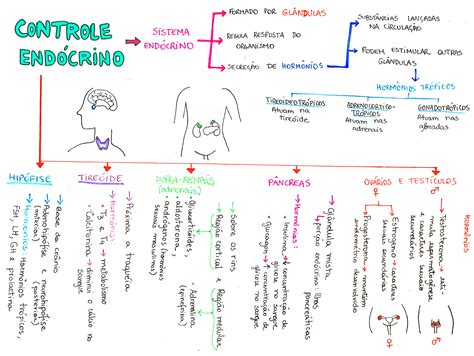 CONTROLE
ENDÓCRINO
SISTEMA
ENDÓCRINO
FORMADO POR GLÂNDULAS
REGULA RESPOSTA DO
ORGANISMO
SECREÇÃO DE HORMÔNIOS
SUBSTÂNCIAS LANÇADAS
NA CIRCULAÇÃO
PODEM ESTIMULAR OUTRAS
GLÂNDULAS
HORMÔNIOS TRÓPICOS
TIREOIDEOTRÓPICOS
Atuam na
tireóide
ADRENOCORTICO-
TRÓPICOS
Atuam nas
adrenais
GONADOTRÓPICOS
Atuam nas
gônadas
HIPÓFISE
Base do crânio
Adenohipófise e neurohipófise
(anterior) (posterior)
Hormônios: Hormônios trópicos,
FSH, LH, GH e prolactina
TIREÓIDE
Próxima a traquéia
Hormônios:
T3 e T4 → metabolismo
Calcitonina → diminui o cálcio no
sangue
SUPRA-RENAIS
(adrenais)
Sobre os rins
Região cortical e Região medular
Glicocorticóides,
aldosterona,
andrógenos (hormônios
sexuais masculinos)
Adrenalina
(epinefrina)
PÂNCREAS
Glândula mista
porção endócrina: Ilhas
pancreáticas
Hormônios:
Insulina ↓ concentração de
glicose no sangue
glucagon → ↑ concentração de
glicose no sangue
OVÁRIOS E TESTÍCULOS
Hormônios
Testosterona →
caracteres sexuais
secundários
Estrogênio → caracteres
sexuais secundários
Progesterona → mantém
endométrio desenvolvido